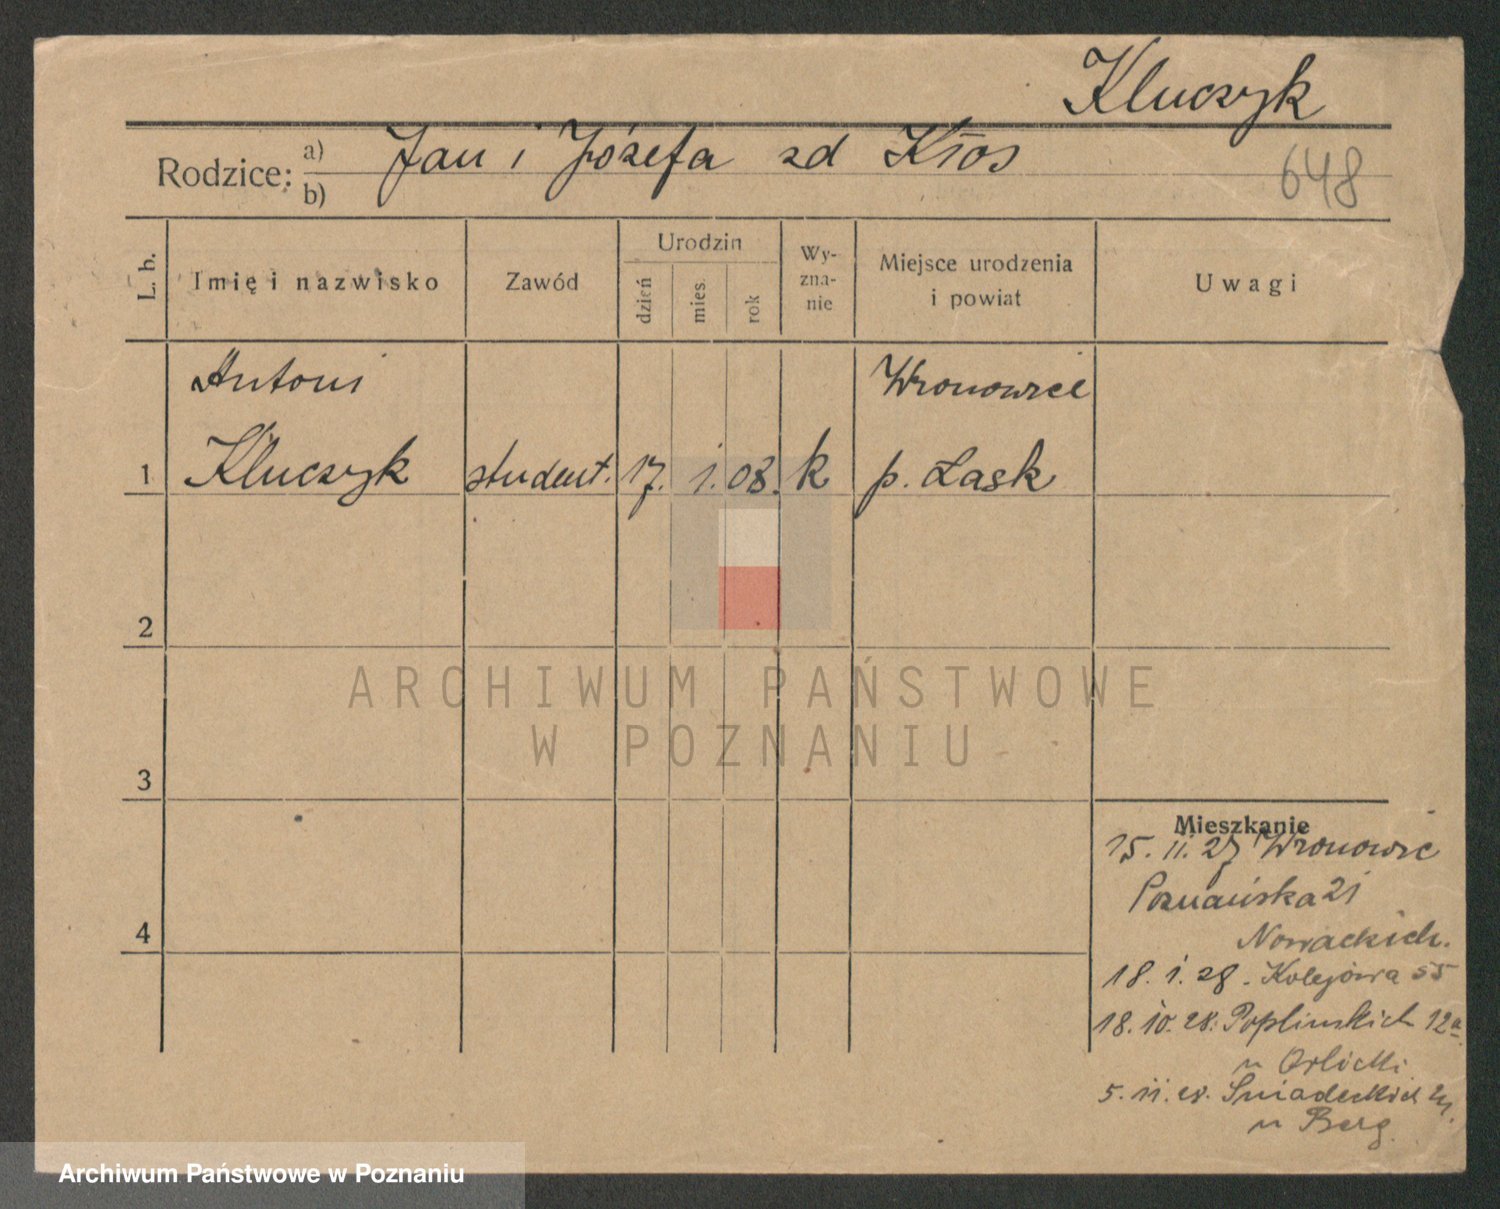 Kluczyk
Rodzice: a) b) Jan i Józefa zd Kłos
648
L. b. Imię i nazwisko Zawód Urodzin dzień mies. rok Wy-zna-nie Miejsce urodzenia i powiat Uwagi
Antoni Wronowice
1 Kluczyk student. 17. i. 08. k p. Łask
2
ARCHIWUM PAŃSTWOWE
W POZNANIU
3
Mieszkanie
15. ii. 27 Wronowic
Poznańska 21
4
Nowackich.
18. i. 28. Kolejowa 55
18. 10. 28. Poplinskich 12a
u Orlicki
5. ii. 28. Śniadeckich
u Berg.
Archiwum Państwowe w Poznaniu